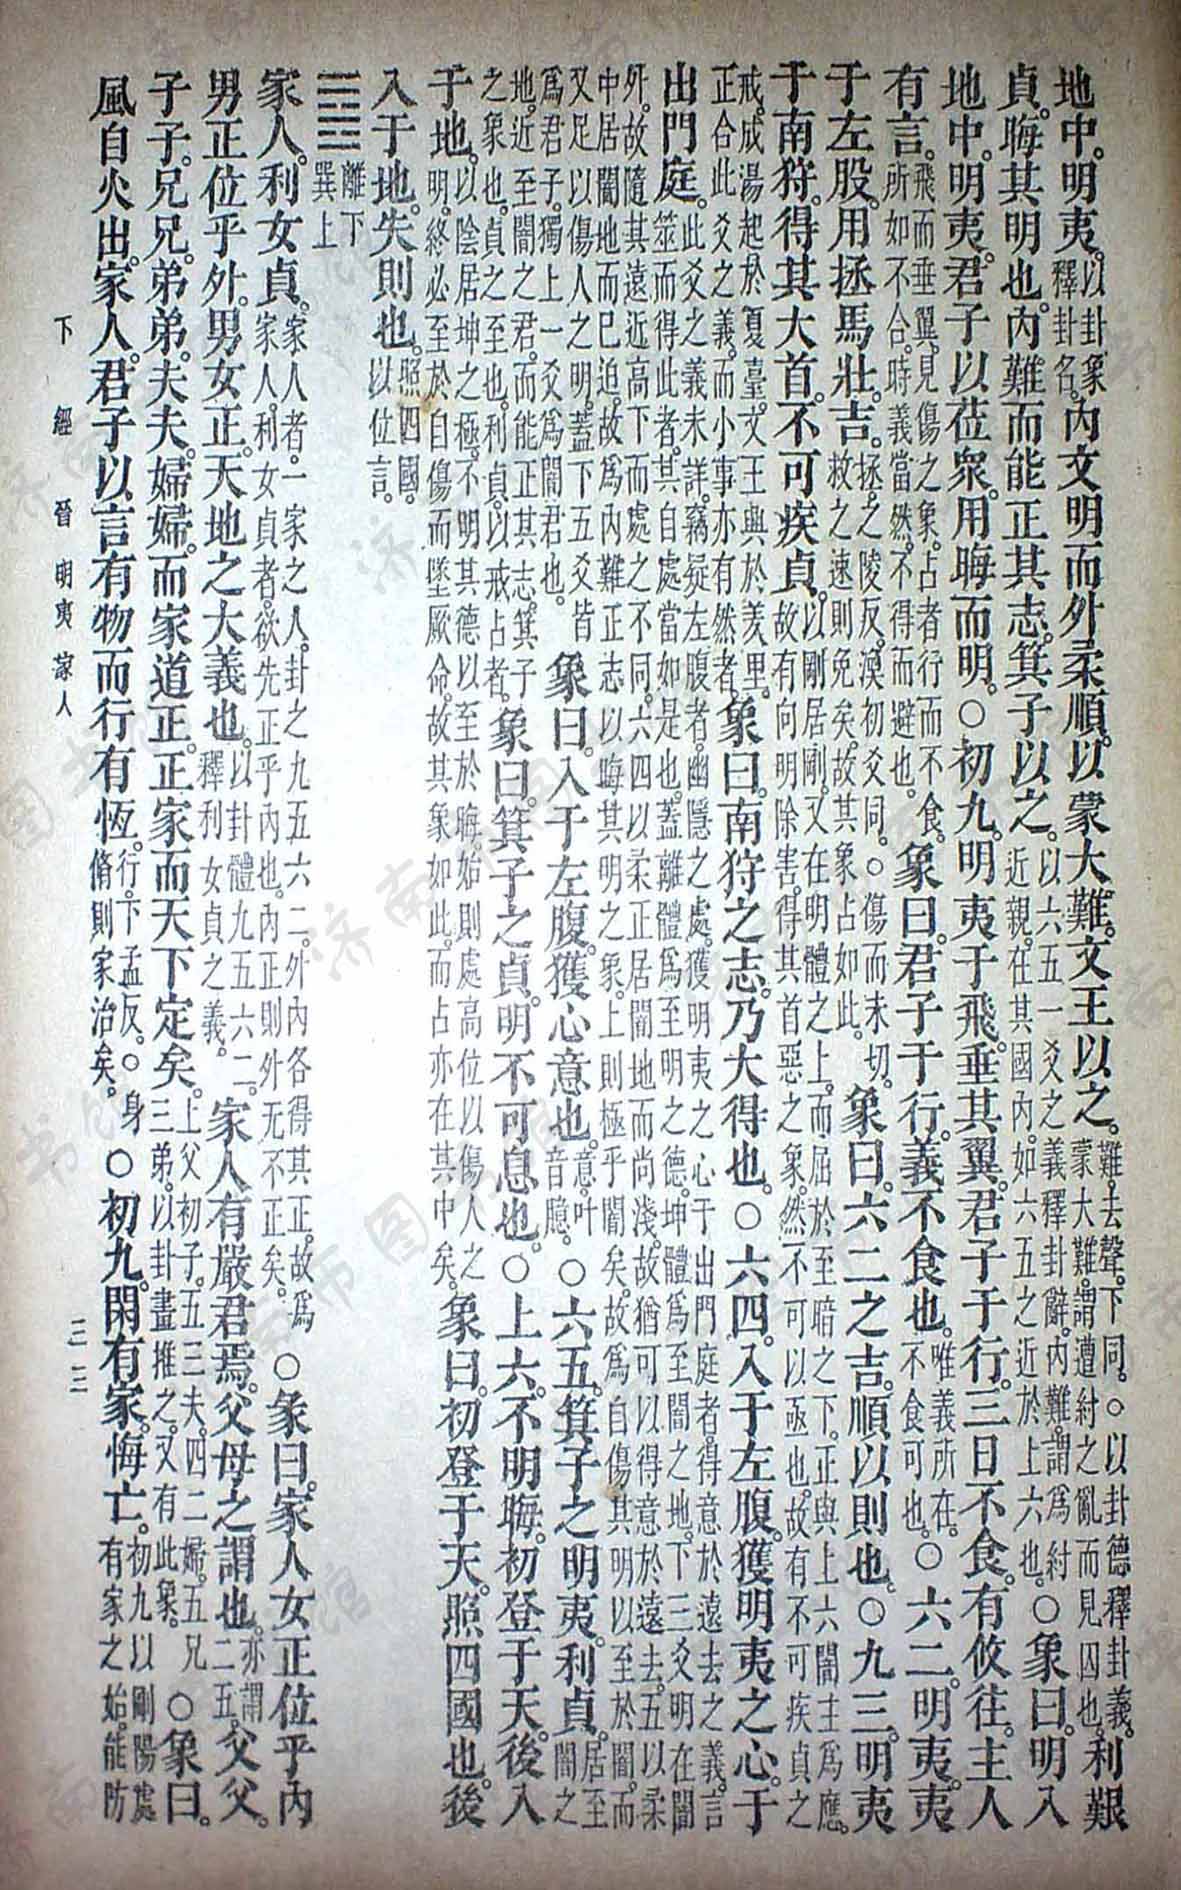 地中。明夷。以卦象釋卦名。內文明而外柔順。以蒙大難。文王以之。難。去聲。下同。○以卦德釋卦義。蒙大難。謂遭紂之亂而見囚也。利艱
貞。晦其明也。內難而能正其志。箕子以之。以六五一爻之義釋卦辭。內難。謂爲紂近親。在其國內。如六五之近於上六也。○象曰。明入
地中。明夷。君子以莅衆。用晦而明。○初九。明夷于飛。垂其翼。君子于行。三日不食。有攸往。主人
有言。飛而垂翼。見傷之象。占者行而不食。所如不合。時義當然。不得而避也。象曰。君子于行。義不食也。唯義所在。不食可也。○六二。明夷。夷
于左股。用拯馬壯。吉。拯。之陵反。渙初爻同。○傷而未切。救之速則免矣。故其象占如此。象曰。六二之吉。順以則也。○九三。明夷
于南狩。得其大首。不可疾貞。以剛居剛。又在明體之上。而屈於至暗之下。正與上六闇主爲應。故有向明除害。得其首惡之象。然不可以亟也。故有不可疾貞之
戒。成湯起於夏臺。文王興於羑里。正合此爻之義。而小事亦有然者。象曰。南狩之志。乃大得也。○六四。入于左腹。獲明夷之心。于
出門庭。此爻之義未詳。竊疑左腹者。幽隱之處。獲明夷之心于出門庭者。得意於遠去之義。言筮而得此者。其自處當如是也。蓋離體爲至明之德。坤體爲至闇之地。下三爻明在闇
外。故隨其遠近高下而處之不同。六四以柔正居闇地而尚淺。故猶可以得意於遠去。五以柔中居闇地而已迫。故爲內難正志以晦其明之象。上則極乎闇矣。故爲自傷其明以至於闇。而
又足以傷人之明。蓋下五爻皆爲君子。獨上一爻爲闇君也。象曰。入于左腹。獲心意也。意。叶音臆。○六五。箕子之明夷。利貞。居至闇之
地。近至闇之君。而能正其志。箕子之象也。貞之至也。利貞。以戒占者。象曰。箕子之貞。明不可息也。○上六。不明晦。初登于天。後入
于地。以陰居坤之極。不明其德以至於晦。始則處高位以傷人之明。終必至於自傷而墜厥命。故其象如此。而占亦在其中矣。象曰。初登于天。照四國也。後
入于地。失則也。照四國。以位言。
離下巽上
家人。利女貞。家人者。一家之人。卦之九五六二。外內各得其正。故爲家人。利女貞者。欲先正乎內也。內正則外无不正矣。○彖曰。家人女正位乎內
男正位乎外。男女正。天地之大義也。以卦體九五六二。釋利女貞之義。家人有嚴君焉。父母之謂也。亦謂二五。父父。
子子。兄兄。弟弟。夫夫。婦婦。而家道正。正家而天下定矣。上父初子。五三夫。四二婦。五兄三弟。以卦畫推之。又有此象。○象曰。
風自火出。家人。君子以言有物而行有恆。行。下孟反。○身脩則家治矣。○初九。閑有家。悔亡。初九以剛陽處有家之始。能防
下經 晉 明夷 家人 三三